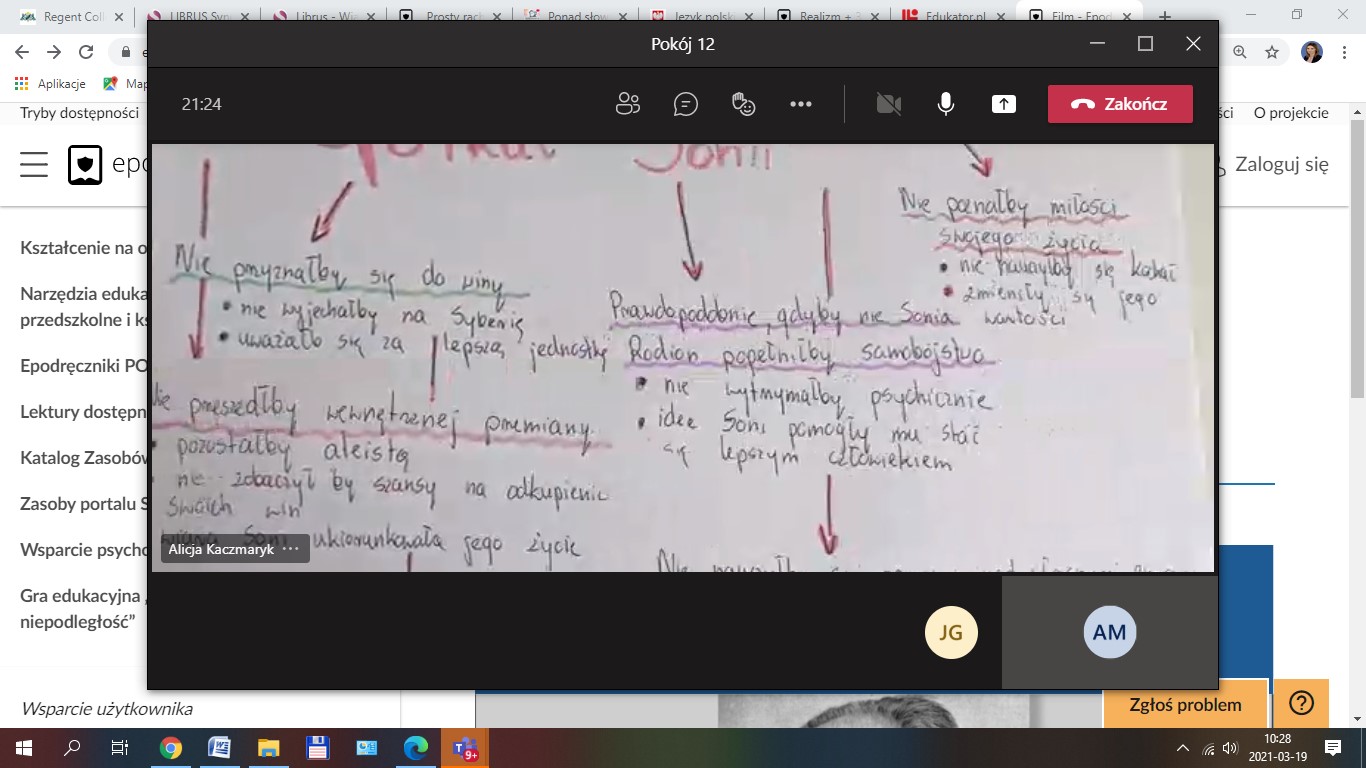 Regent Coll
LIBRUS Syn
Librus - Wi
Prosty rach
Ponad słow
Język polsk
Realizm + 3
Edukator.pl
Film - Epod
Aplikacje
Map
Tryby dostępności
ści
O projekcie
epo
Zaloguj się
Kształcenie na o
Narzędzia eduka
przedszkolne i ks
Epodręczniki PO
Lektury dostępn
Katalog Zasobów
Zasoby portalu S
Wsparcie psycho
Gra edukacyjna „
niepodległość”
Wsparcie użytkownika
Pokój 12
21:24
Zakończ
Soni!
Nie przyznałby się do winy
• nie wyjechałby na Syberię
• uważałb się za lepszą jednostkę
przeszedłby wewnętrznej przemiany
• pozostałby ateistą
• nie zobaczył by szansy na odkupienie
swoich win
Soni ukierunkowała jego życie
Prawdopoddonie, gdyby nie Sonia
Rodion popełniłby samobójstwo
• nie wytrzymałby psychicznie
• idee Soni pomogły mu stać
się lepszym człowiekiem
Nie poznałby miłości
swojego życia
• nie nauczyłby się kochać
• zmieniły się jego
wartości
Alicja Kaczmaryk
JG
AM
Zgłoś problem
9+
10:28
2021-03-19